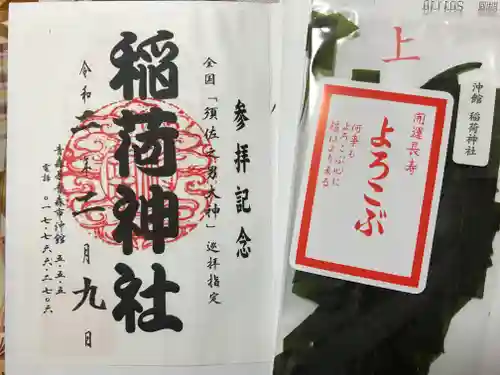 参拝記念
全国「須佐之男大神」巡拝指定
稲荷神社
令和三年三月九日
青森県青森市沖館五-五-五
電話〇一七-七六六-二七〇六
上
沖館 稲荷神社
開運長寿
よろこぶ
何事も
よろこぶ心に
福はより来る